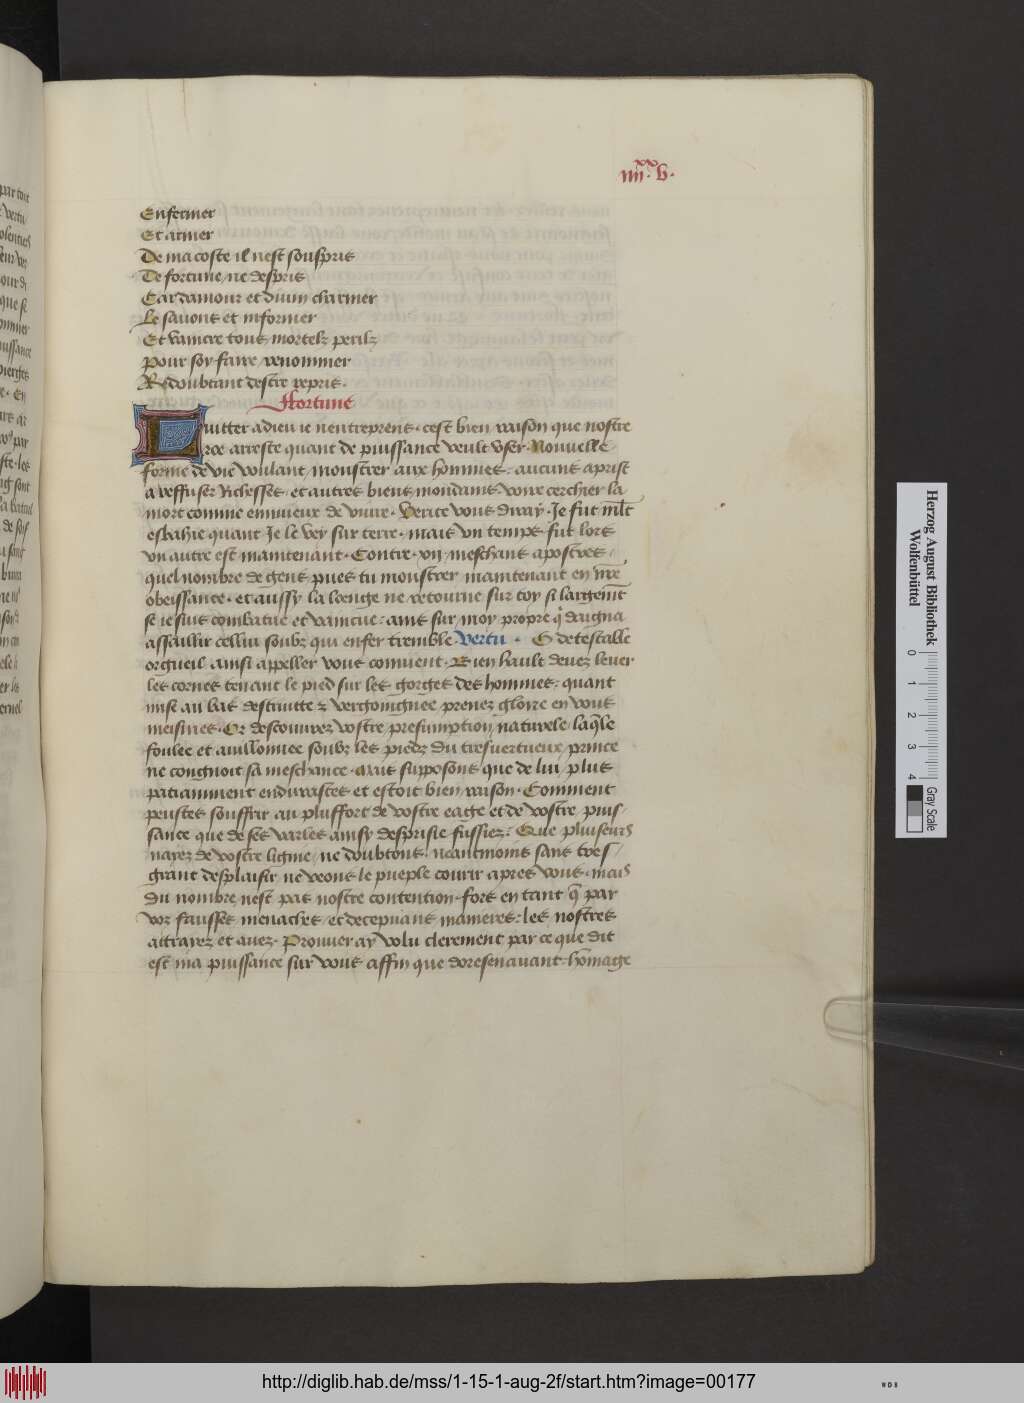 iiii.xx v.
Enfermer
Et armer
De ma coste il nest souspris
De fortune ne despris
Car damour et divin charmer
Le savons et informer
Et vaincre tous mortelz perilz
Pour soy faire renommer
Redoubtant destre repris.
Ffortune
Luitter a dieu ie nentreprens. cest bien raison que nostre
roe arreste quant de puissance veult vser. Nouvelle
forme de vie voulant monstrer aux hommes. aucuns aprist
a reffuser Richesses. et autres biens mondains. voire cerchier la
mort comme ennuieux de vivre. Verite vous diray. Je fus mlt
esbahie quant Je le vey sur terre. mais vn temps fut lors
vn autre est maintenant. Contre .vn. meschans apostres.
quel nombre de gens pues tu monstrer maintenant en nre
obeissance. et aussy la loenge ne retourne sur toy si largemt
se ie suis combatue et vaincue. ains sur moy propre q daigna
assaillir cellui soubz qui enfer tremble. Vertu . O detestable
orgueil ainsi appeller vous convient. Bien hault devez lever
les cornes tenant le pied sur les gorges des hommes. quant
mise au bas destruitte z vergongniee prenez gloire en vous
meismes. Or descouvrez vostre presumption naturele laqle
foulee et avillonnee soubz les piedz du tresvertueux prince
ne congnoit sa meschance. Mais supposons que de lui plus
patiamment endurastes et estoit bien raison. Comment
peustes souffrir au plus fort de vostre eage et de vostre puis
sance que de ses varles ainsy desprisie fussiez. Que pluseurs
nayez de vostre lignie ne doubtons. neantmoins sans tres
grant desplaisir ne veons le pueple courir apres vous. mais
du nombre nest pas nostre contention. fors en tant q par
voz fausses menaches et decepvans manieres. les nostres
attrayez et avez. Prouver ay volu clerement par ce que dit
est ma puissance sur vous affin que doresenavant. homage
Herzog August Bibliothek
Wolfenbüttel
0 1 2 3 4
Gray Scale
http://diglib.hab.de/mss/1-15-1-aug-2f/start.htm?image=00177
WDB